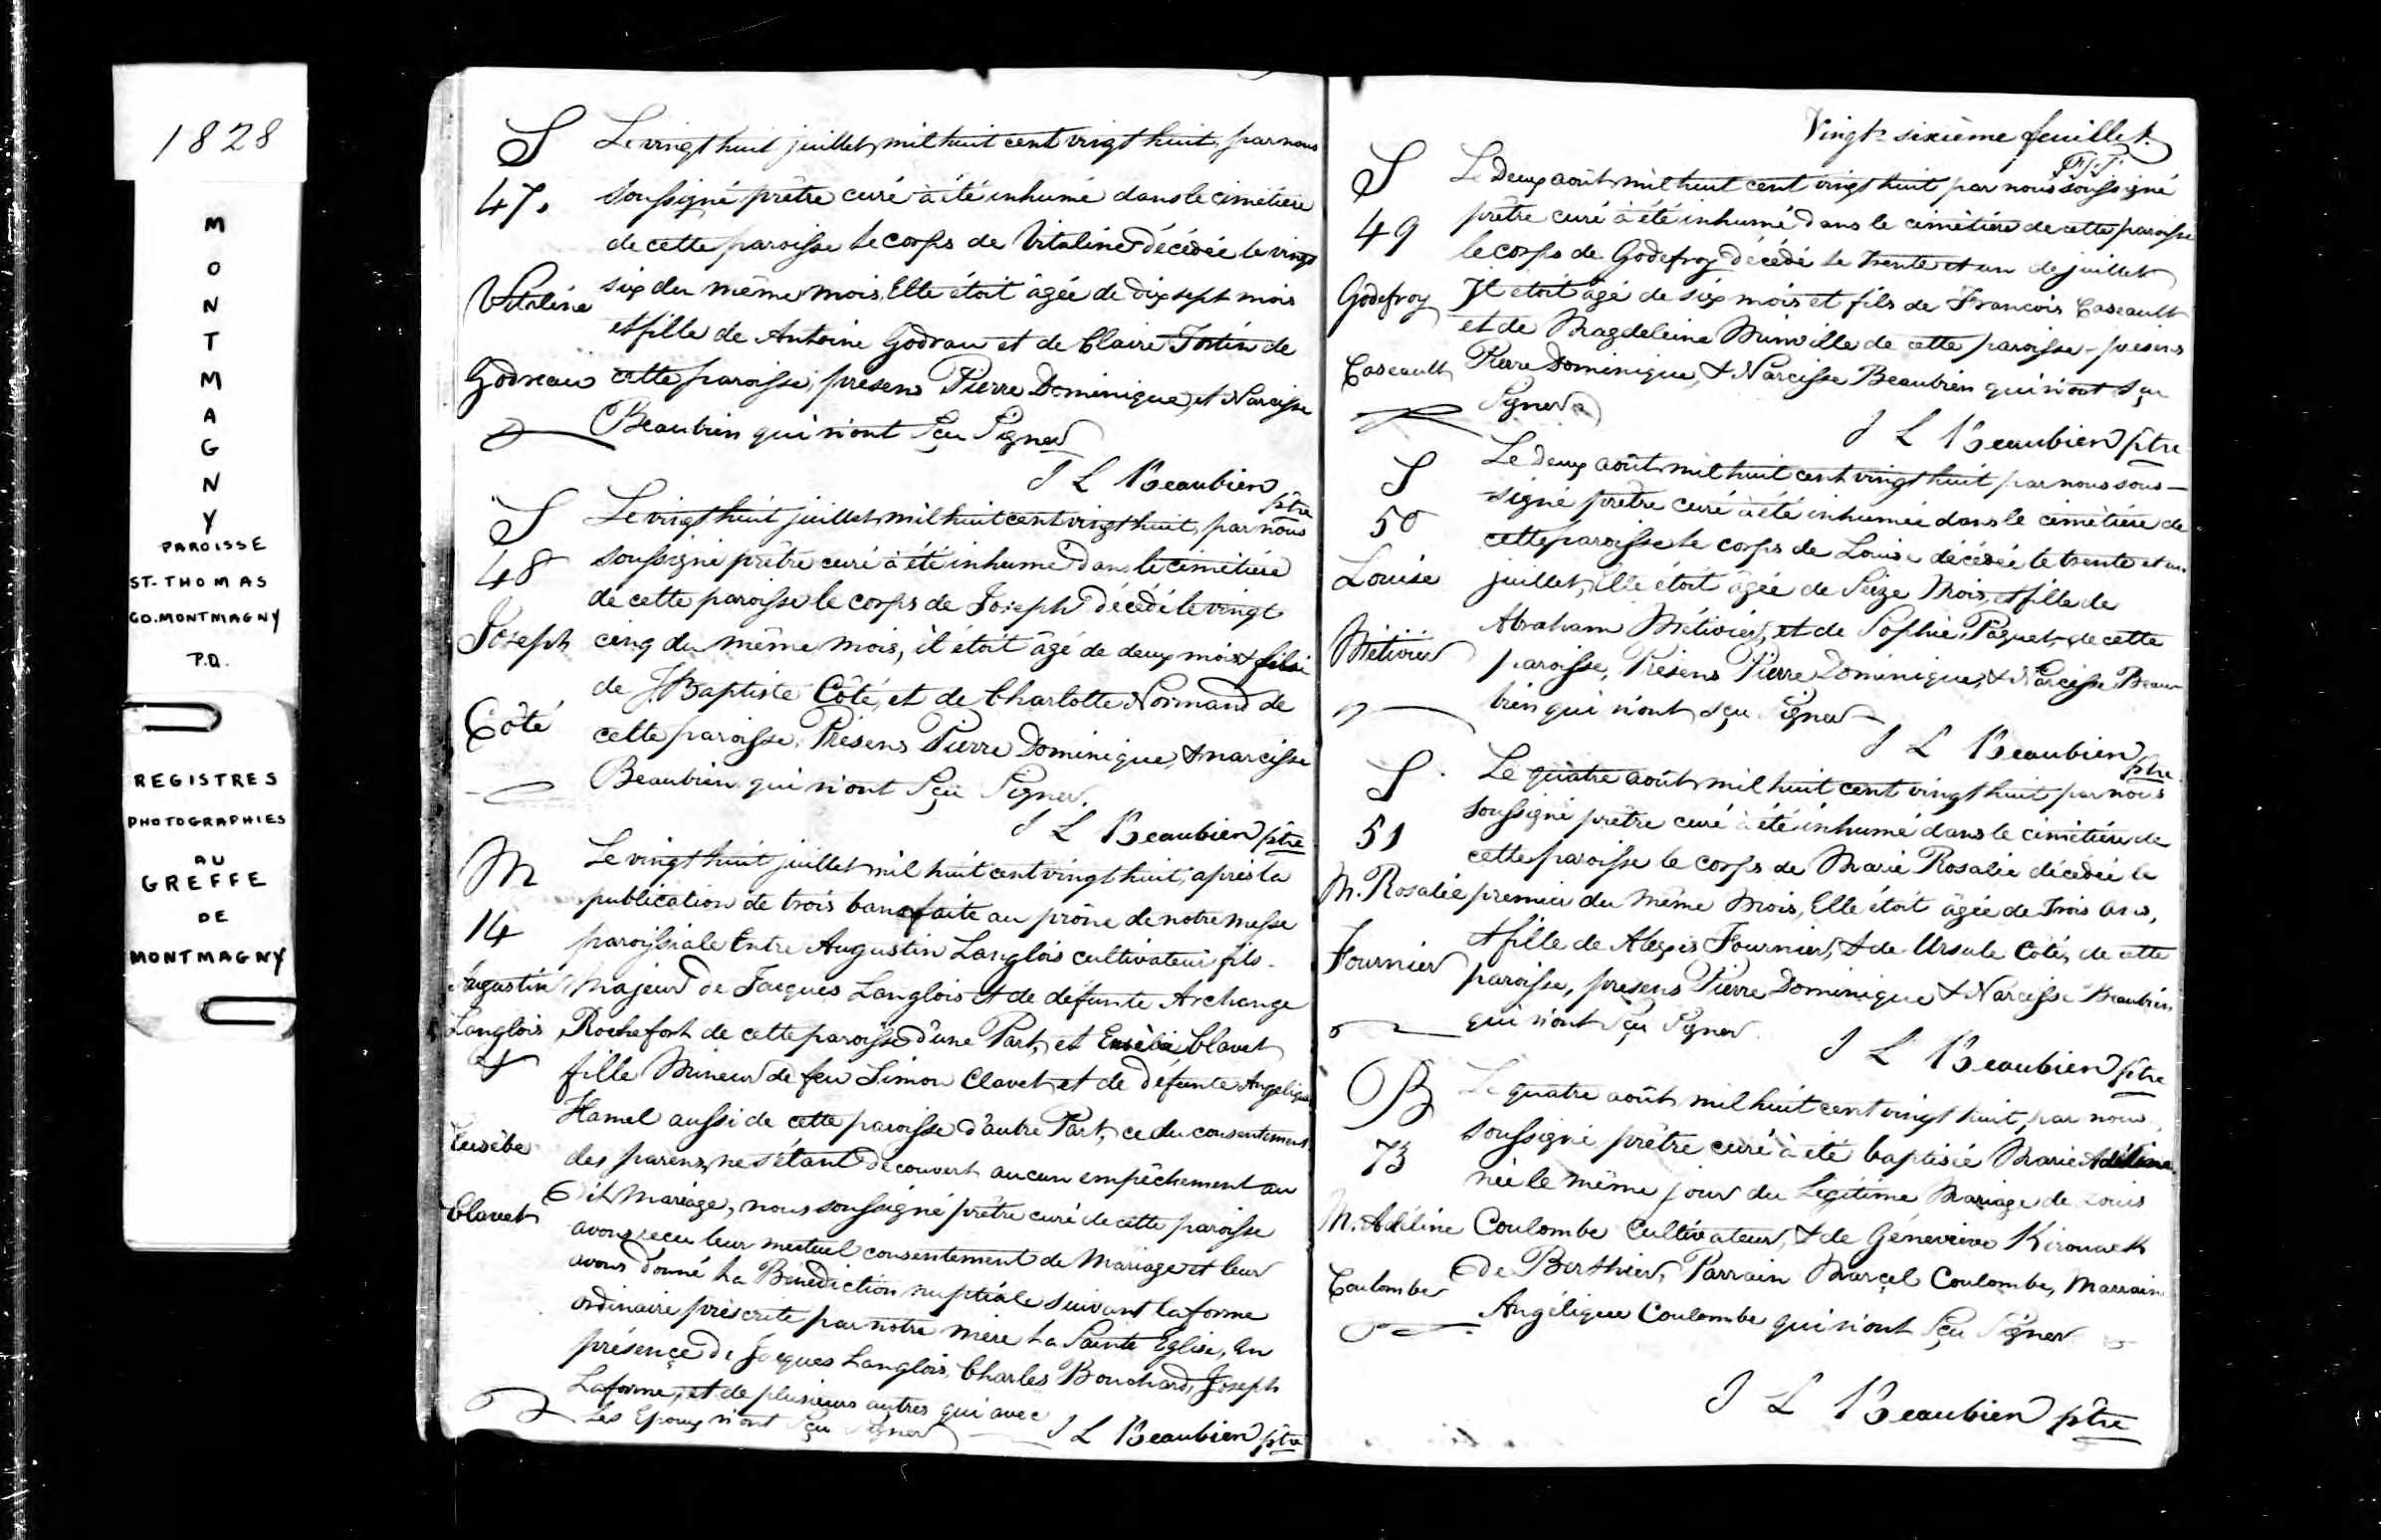 1828
M
O
N
T
M
A
G
N
Y
PAROISSE
ST-THOMAS
CO. MONTMAGNY
P.Q.
REGISTRES
PHOTOGRAPHIES
AU
GREFFE
DE
MONTMAGNY
S
47.
Vitaline
Godreau
Le vingt huit juillet mil huit cent vingt huit, par nous
soussigné prêtre curé à été inhumé dans le cimétière
de cette paroisse le corps de Vitaline décédée le vingt
six du même mois, Elle étoit âgée de dix sept mois
et fille de Antoine Godreau et de Claire Fortin de
cette paroisse, présens Pierre Dominique, et Narcisse
Beaubien qui n'ont sçu signer
J L Beaubien ptre
S
48
Joseph
Côté
Le vingt huit juillet mil huit cent vingt huit, par nous
soussigné prêtre curé à été inhumé dans le cimétière
de cette paroisse le corps de Joseph décédé le vingt
cinq du même mois, il étoit âgé de deux mois & fils
de J. Baptiste Côté, et de Charlotte Normand de
cette paroisse. Présens Pierre Dominique, & Narcisse
Beaubien qui n'ont sçu signer.
J L Beaubien ptre
M
14
Augustin
Langlois
&
Eusèbe
Clavet
Le vingt huit juillet mil huit cent vingt huit, après la
publication de trois bancs faite au prône de notre messe
paroissiale Entre Augustin Langlois cultivateur fils
majeur de Jacques Langlois et de défunte Archange
Rochefort de cette paroisse d'une Part, et Clavet
fille Mineur de feu Simon Clavet et de défunte Angelique
Hamel aussi de cette paroisse d'autre Part, ce du consentement
des parens, ne s'étant découvert aucun empêchement au
dit Mariage, nous soussigné prêtre curé de cette paroisse
avons reçu leur mutuel consentement de Mariage et leur
avons donné la Bénédiction nuptiale suivant la forme
ordinaire préscrite par notre mère la Sainte Eglise, en
présence de Jacques Langlois, Charles Bouchard, Joseph
Laforme, et de plusieurs autres qui avec
Les Epoux n'ont sçu signer
J L Beaubien ptre
Vingt-sixième feuillet.
S
49
Godefroy
Caseault
Le deux août mil huit cent vingt huit par nous soussigné
prêtre curé à été inhumé dans le cimétière de cette paroisse
le corps de Godefroy décédé le trente et un de juillet
Il étoit âgé de six mois et fils de Francois Caseault
et de Magdeleine Minville de cette paroisse - présens
Pierre Dominique, & Narcisse Beaubien qui n'ont sçu
signer
J L Beaubien ptre
S
50
Louise
Métivier
Le deux août mil huit cent vingt huit par nous sous-
signé prêtre curé à été inhumée dans le cimétière de
cette paroisse le corps de Louise décédée le trente et un
juillet, Elle étoit âgée de Seize Mois, et fille de
Abraham Métivier, et de Sophie Paquet de cette
paroisse, Présens Pierre Dominique, & Narcisse Beau-
bien qui n'ont sçu signer
J L Beaubien ptre
S
51
M. Rosalie
Fournier
Le quatre août mil huit cent vingt huit par nous
soussigné prêtre curé à été inhumé dans le cimétière de
cette paroisse le corps de Marie Rosalie décédée le
premier du même Mois, Elle étoit âgée de Trois ans,
et fille de Alexis Fournier, & de Ursule Coté, de cette
paroisse, présens Pierre Dominique & Narcisse Beaubien
qui n'ont sçu signer.
J L Beaubien ptre
B
73
M. Adéline
Coulombe
Le quatre août mil huit cent vingt huit, par nous
soussigné prêtre curé à été baptisée Marie Adéline
née le même jour du Légitime Mariage de Louis
Coulombe Cultivateur, & de Géneviève Kirouack
de Berthier, Parrain Marcel Coulombe, Marraine
Angélique Coulombe qui n'ont sçu signer
J L Beaubien ptre